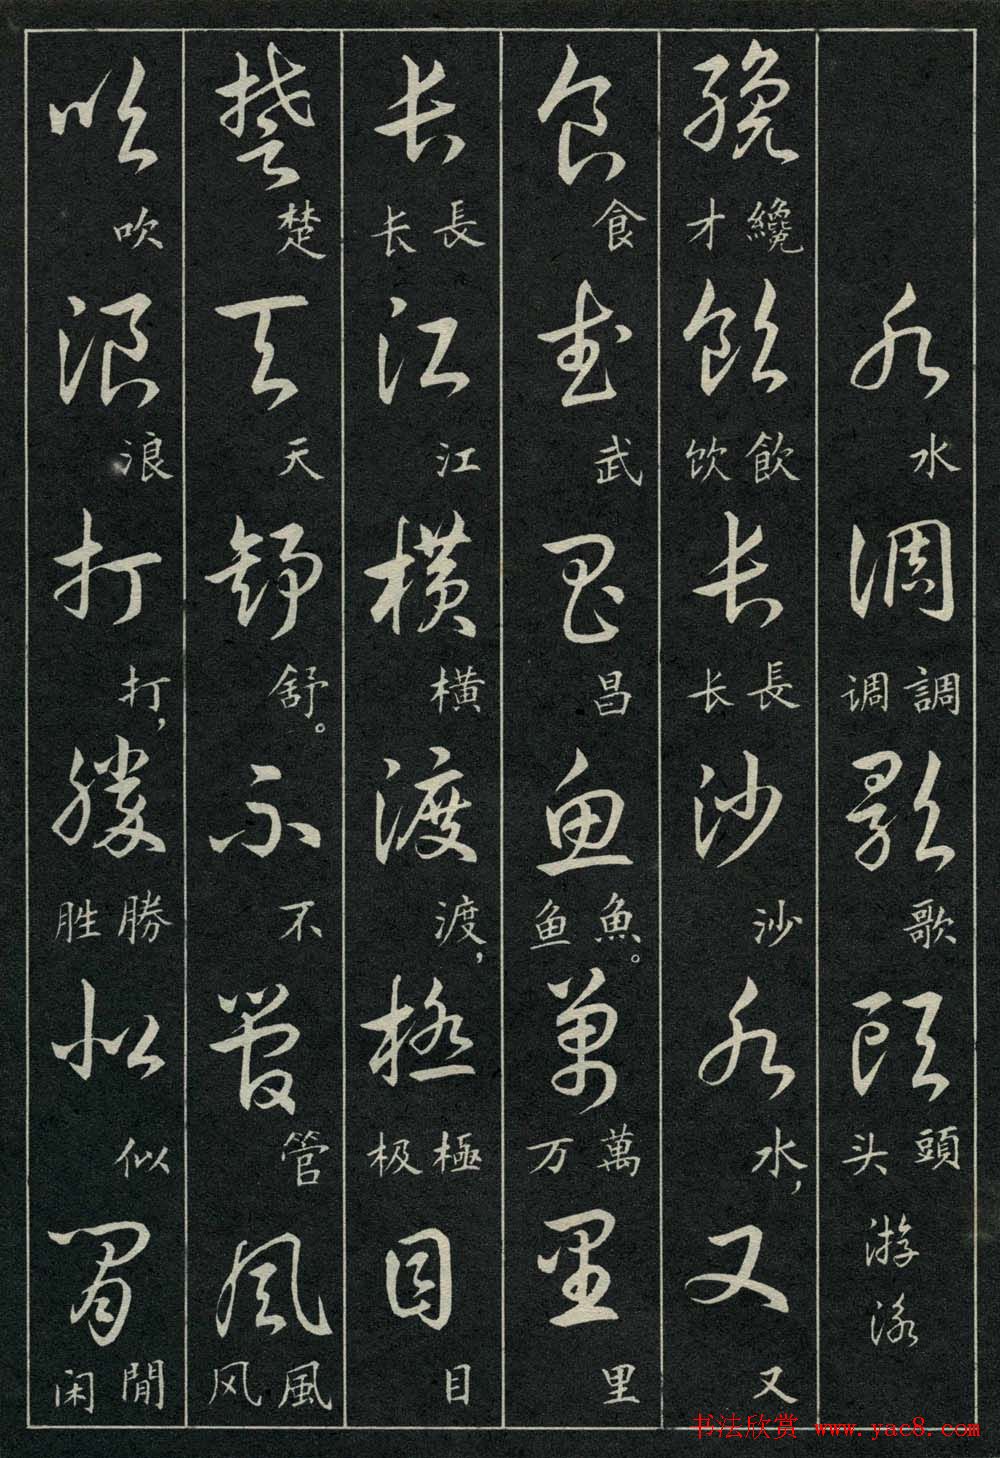 水 水 調 調 调 歌 歌 頭 頭 头 游泳
纔 纔 才 飲 飲 饮 長 長 长 沙 沙 水 水, 又 又
食 食 武 武 昌 昌 魚 魚。 鱼 萬 萬 万 里 里
長 長 长 江 江 橫 橫 渡 渡, 極 極 极 目 目
楚 楚 天 天 舒 舒。 不 不 管 管 風 風 风
吹 吹 浪 浪 打 打, 勝 勝 胜 似 似 閒 閒 闲
书法欣赏 www.yac8.com